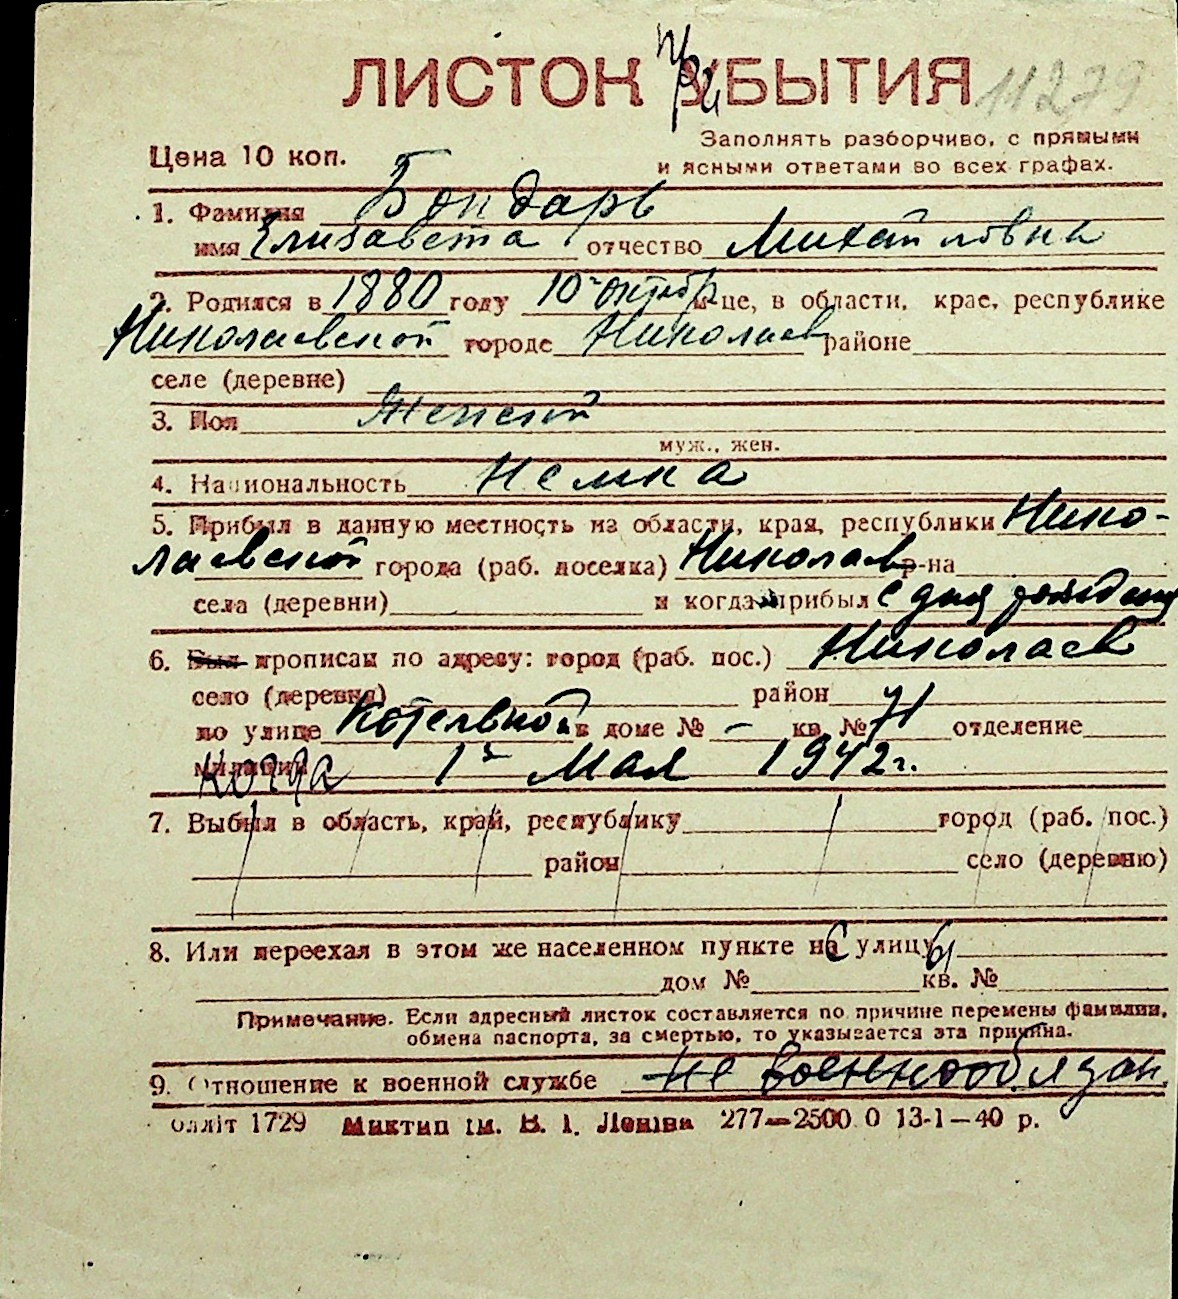 ЛИСТОК УБЫТИЯ 11279
при
Цена 10 коп.
Заполнять разборчиво, с прямыми
и ясными ответами во всех графах.
1. Фамилия Бондарь
имя Елизавета отчество Михайловна
2. Родился в 1880 году 10 октябр м-це, в области, крае, республике
Николаевской городе Николаев районе
селе (деревне)
3. Пол Женский
муж., жен.
4. Национальность Немка
5. Прибыл в данную местность из области, края, республики Нико-
лаевской города (раб. поселка) Николаев р-на
села (деревни) и когда прибыл с дня рождения
6. Был прописан по адресу: город (раб. пос.) Николаев
село (деревня) район
по улице Котельной в доме № – кв. № 71 отделение
милиции Когда 1го Мая 1942 г.
7. Выбыл в область, край, республику город (раб. пос.)
район село (деревню)
8. Или переехал в этом же населенном пункте на С улицы
дом № кв. №
Примечание. Если адресный листок составляется по причине перемены фамилии,
обмена паспорта, за смертью, то указывается эта причина.
9. Отношение к военной службе не военнообязан.
олліт 1729 Миктип ім. В. І. Леніна 277—2500 0 13-1—40 р.